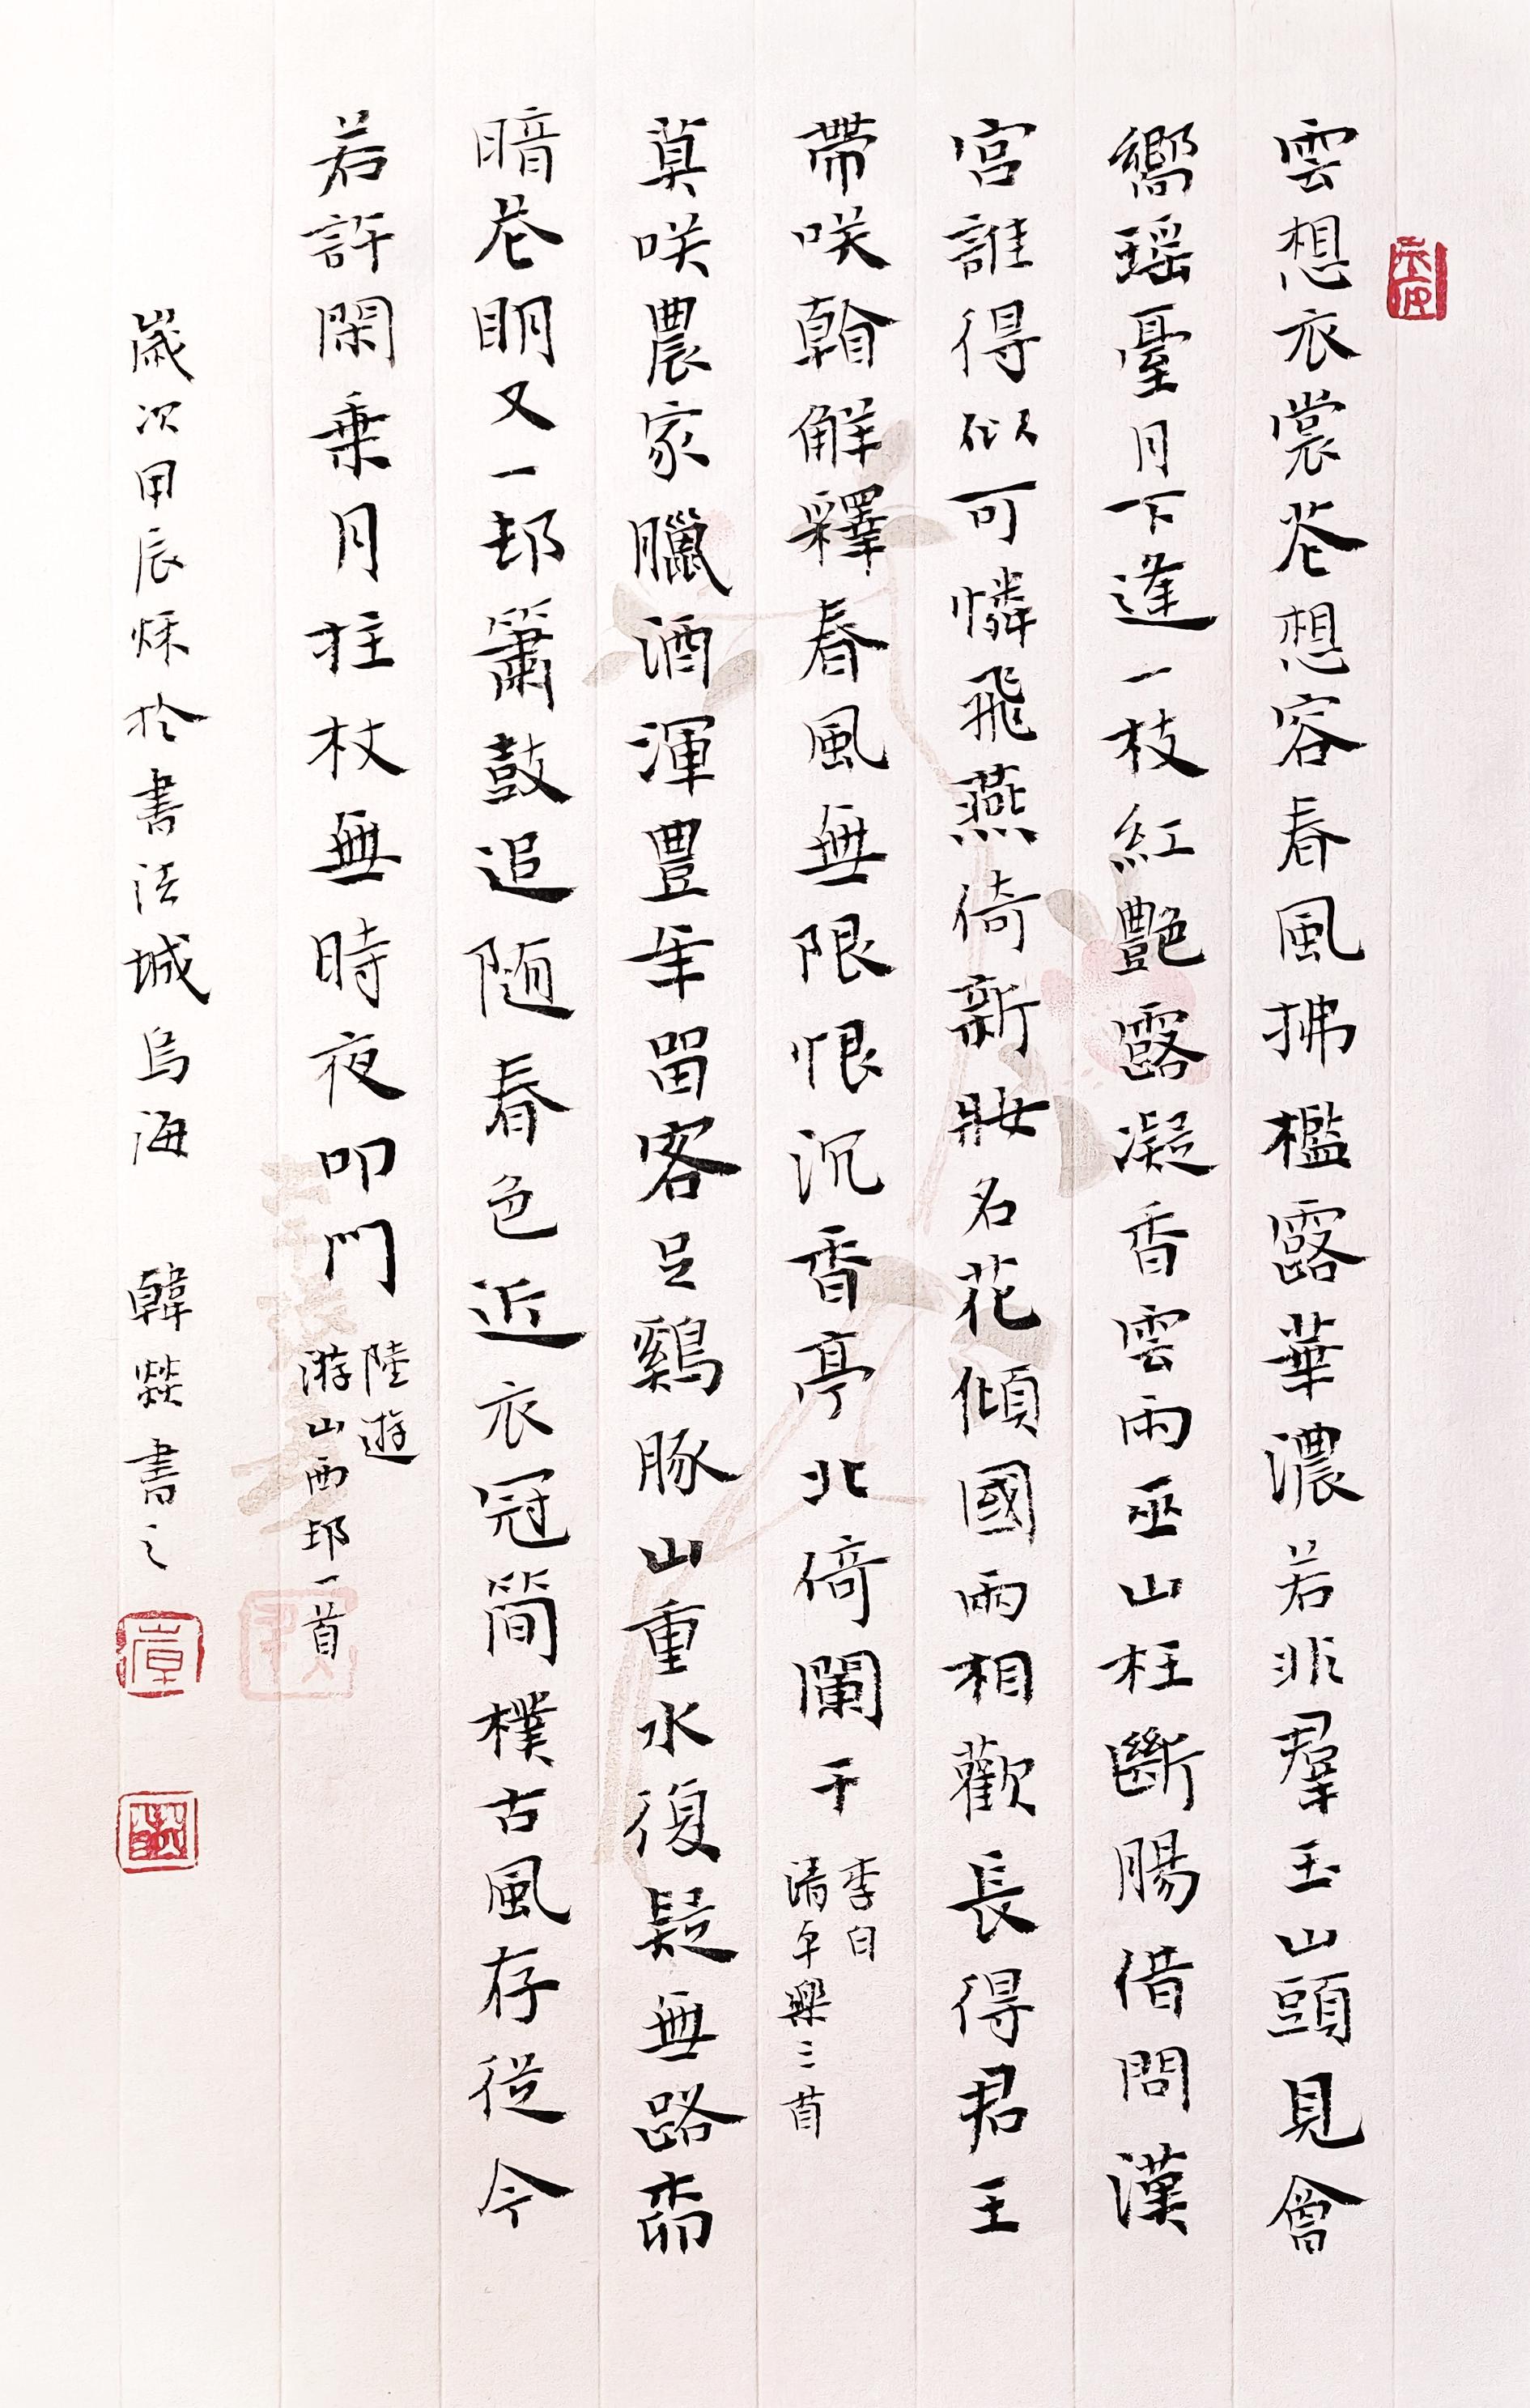 雲想衣裳花想容春風拂檻露華濃若非羣玉山頭見會
嚮瑶臺月下逢一枝紅艷露凝香雲雨巫山枉斷腸借問漢
宮誰得似可憐飛燕倚新妝名花傾國兩相歡長得君王
帶咲翰解釋春風無限恨沉香亭北倚闌干
李白
清平樂三首
莫咲農家臘酒渾豊年留客足鷄豚山重水復疑無路栁
暗花明又一邨簫鼓追随春色近衣冠簡樸古風存從今
若許閑乗月拄杖無時夜叩門
陸遊
游山西邨一首
歲次甲辰秌於書法城烏海 韓燚書之